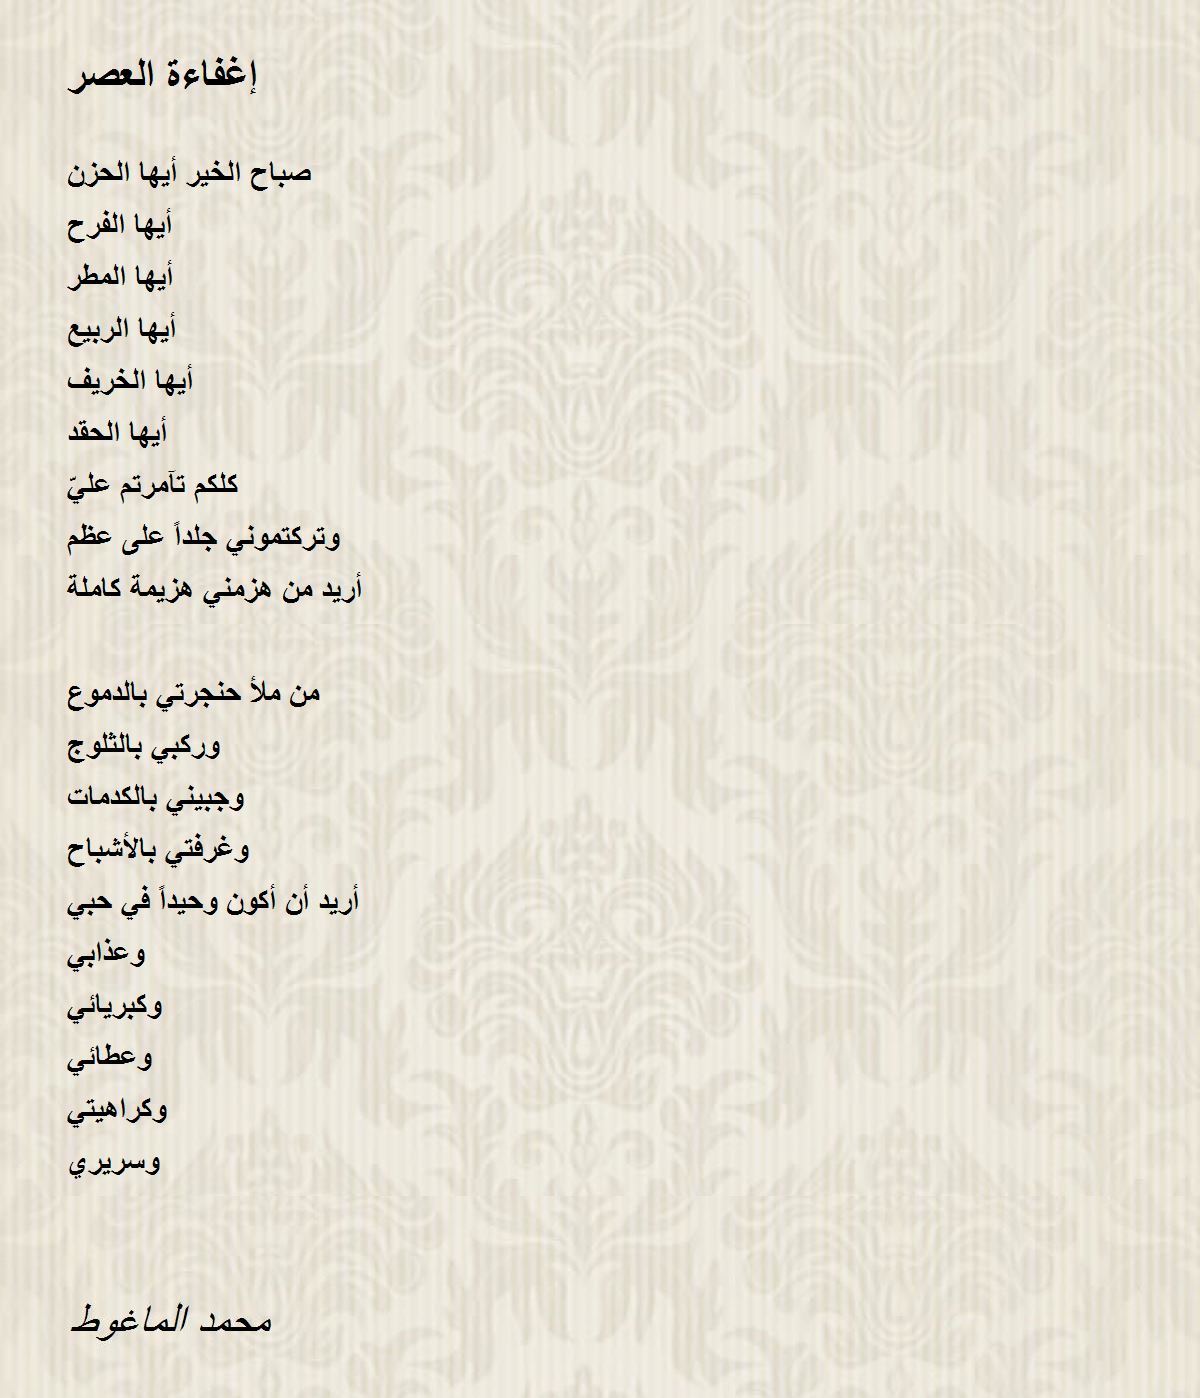 إغفاءة العصر
صباح الخير أيها الحزن
أيها الفرح
أيها المطر
أيها الربيع
أيها الخريف
أيها الحقد
كلكم تآمرتم عليّ
وتركتموني جلداً على عظم
أريد من هزمني هزيمة كاملة
من ملأ حنجرتي بالدموع
وركبي بالثلوج
وجبيني بالكدمات
وغرفتي بالأشباح
أريد أن أكون وحيداً في حبي
وعذابي
وكبريائي
وعطائي
وكراهيتي
وسريري
محمد الماغوط